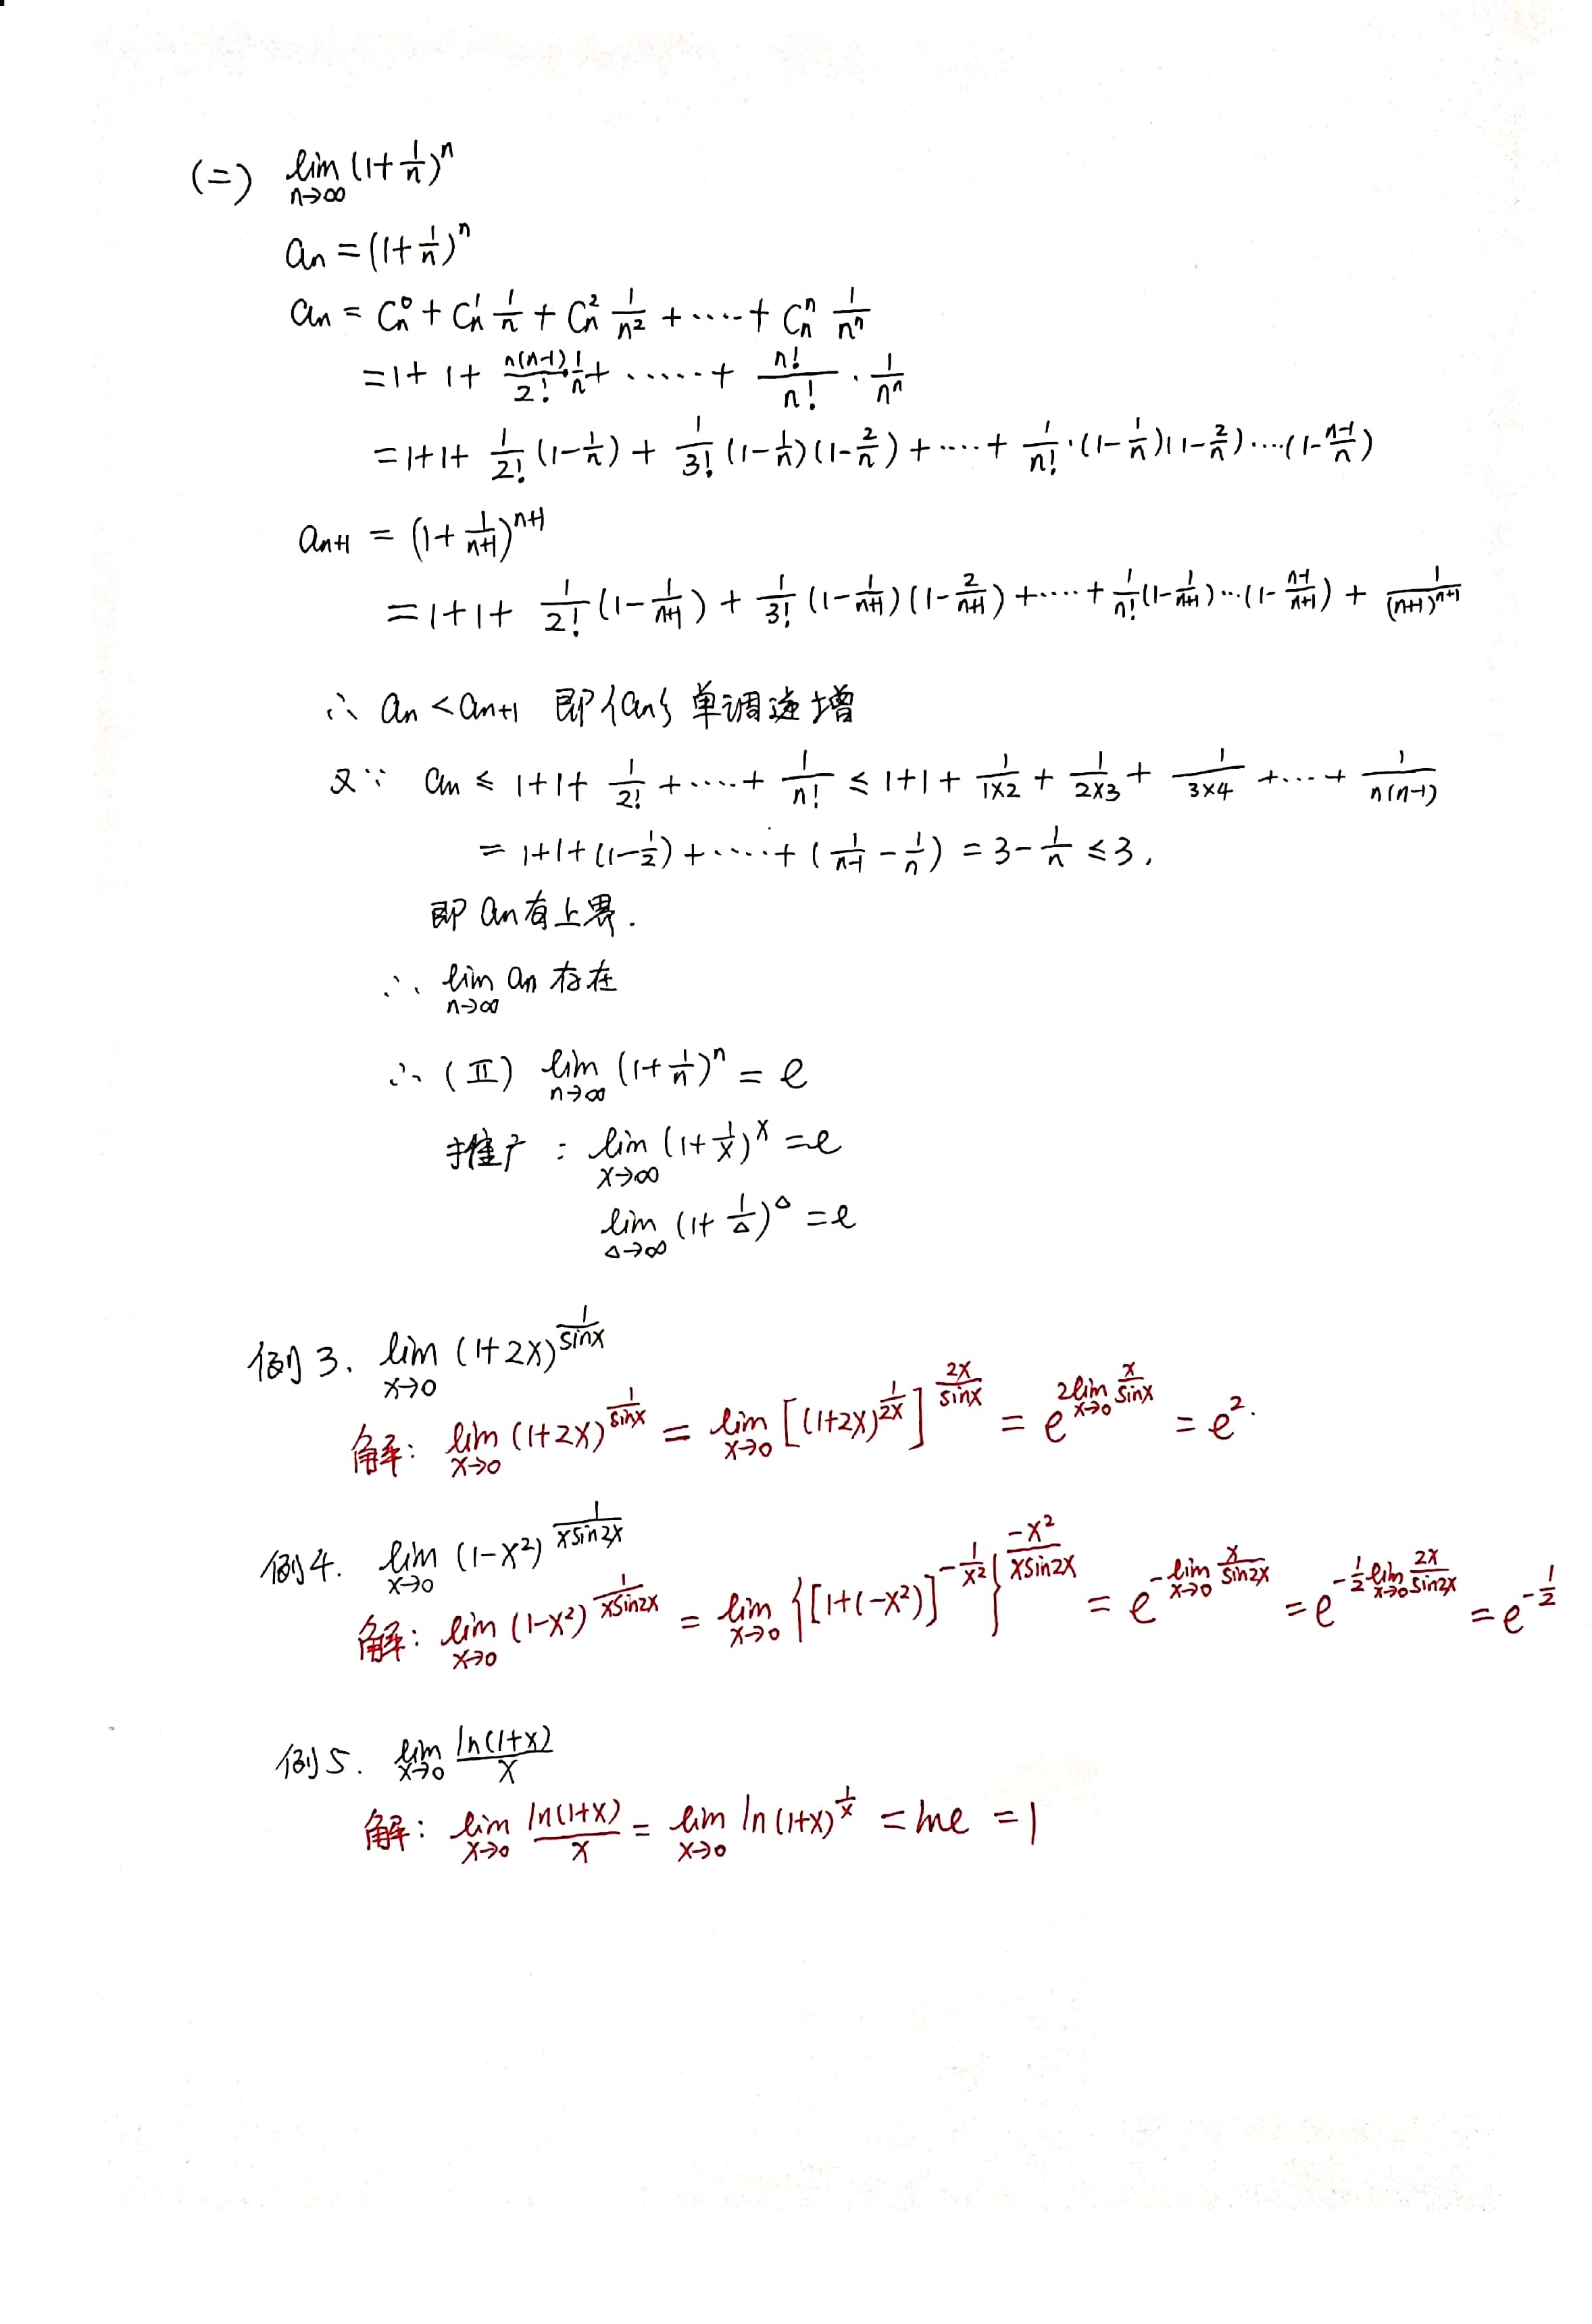 (二) lim_{n→∞} (1+1/n)^n
a_n = (1+1/n)^n
a_n = C_n^0 + C_n^1 1/n + C_n^2 1/n² + ····· + C_n^n 1/n^n
=1+1+ n(n-1)/2! · 1/n + ······ + n!/n! · 1/n^n
=1+1+ 1/2! (1-1/n) + 1/3! (1-1/n)(1-2/n) + ···· + 1/n! ·(1-1/n)(1-2/n)····(1-(n-1)/n)
a_{n+1} = (1+1/(n+1))^{n+1}
=1+1+ 1/2! (1-1/(n+1)) + 1/3! (1-1/(n+1))(1-2/(n+1)) +····+ 1/n! (1-1/(n+1))···(1-(n-1)/(n+1)) + 1/(n+1)^{n+1}
∴ a_n < a_{n+1} 即{a_n}单调递增
又∵ a_n ≤ 1+1+ 1/2! + ····· + 1/n! ≤ 1+1+ 1/(1×2) + 1/(2×3) + 1/(3×4) + ··· + 1/(n(n-1))
= 1+1+(1-1/2) + ····· + (1/(n-1) - 1/n) = 3 - 1/n ≤ 3,
即 a_n 有上界.
∴ lim_{n→∞} a_n 存在
∴ (Ⅱ) lim_{n→∞} (1+1/n)^n = e
推广: lim_{x→∞} (1+1/x)^x = e
lim_{△→∞} (1+1/△)^△ = e
例3. lim_{x→0} (1+2x)^{1/sinx}
解: lim_{x→0} (1+2x)^{1/sinx} = lim_{x→0} [(1+2x)^{1/2x}]^{2x/sinx} = e^{2lim_{x→0} x/sinx} = e².
例4. lim_{x→0} (1-x²)^{1/xsin2x}
解: lim_{x→0} (1-x²)^{1/xsin2x} = lim_{x→0} {[1+(-x²)]^{-1/x²}}^{-x²/xsin2x} = e^{-lim_{x→0} x/sin2x} = e^{-1/2 lim_{x→0} 2x/sin2x} = e^{-1/2}
例5. lim_{x→0} ln(1+x)/x
解: lim_{x→0} ln(1+x)/x = lim_{x→0} ln(1+x)^{1/x} = lne = 1